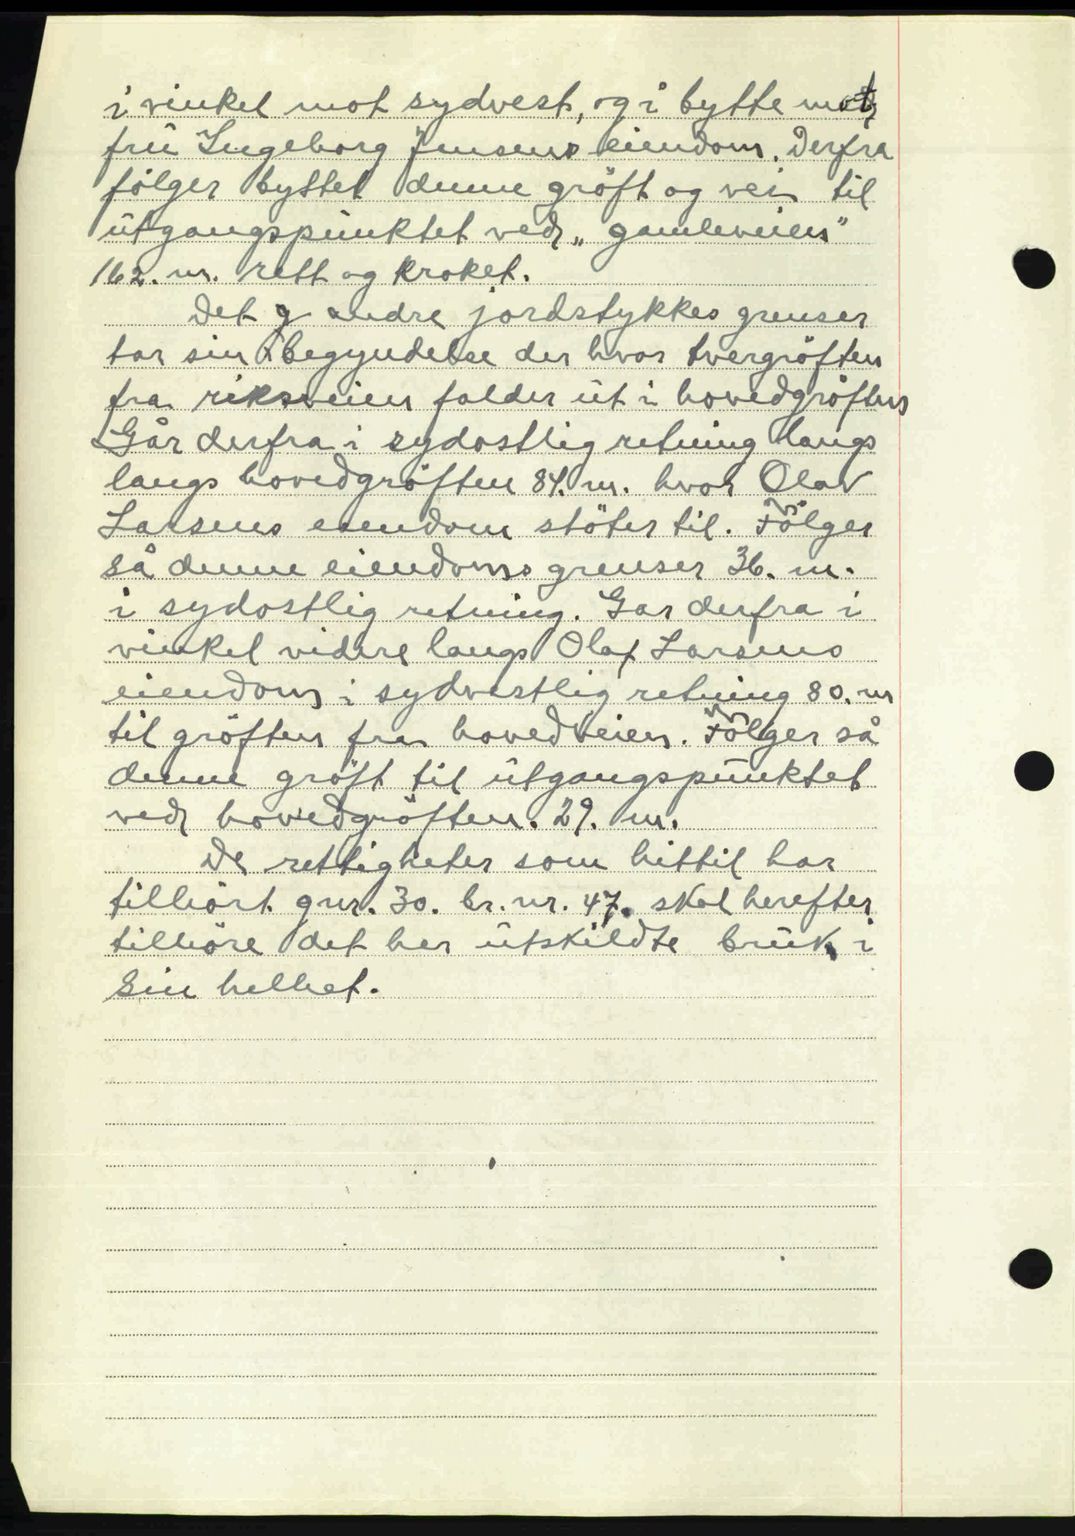 i vinkel mot sydvest, og i bytte mot
frü Ingeborg Jensens eiendom. Derfra
følger byttet denne gröft og vei til
ütgangspünktet ved „gamleveien"
162. m. rett og kroket.
Det andre jordstykkes grenser
tar sin begyndelse der hvor tvergröften
fra riksveien falder üt i hovedgröften
Går derfra i sydostlig retning langs
langs hovedgröften 84. m. hvor Olav
Larsens eiendom stöter til. Fölger
så denne eiendoms grenser 36. m.
i sydostlig retning. Gar derfra i
vinkel videre langs Olaf Larsens
eiendom i sydvestlig retning 80. m
til gröften fra hovedveien. Fölger så
denne gröft til ütgangspünktet
ved hovedgröften. 29. m.
De rettigheter som hittil har
tilhört gnr. 30. br. nr. 47. skal herefter
tilhöre det her ütskildte brük i
sin helhet.